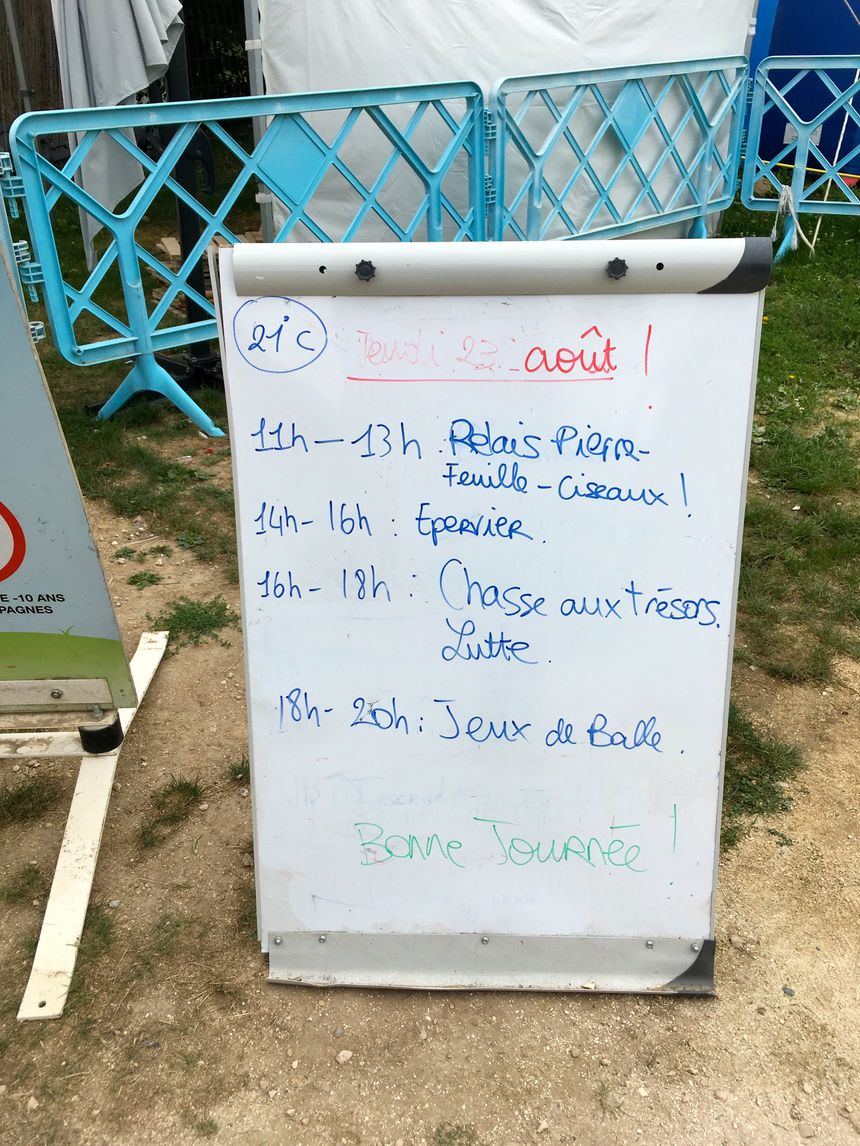 21°C
Jeudi 23 août !
11h – 13h : Relais Pierre-
Feuille - Ciseaux !
14h - 16h : Epervier.
16h - 18h : Chasse aux trésors.
Lutte.
18h - 20h : Jeux de Balle.
Bonne Journée !
E -10 ANS
PAGNES